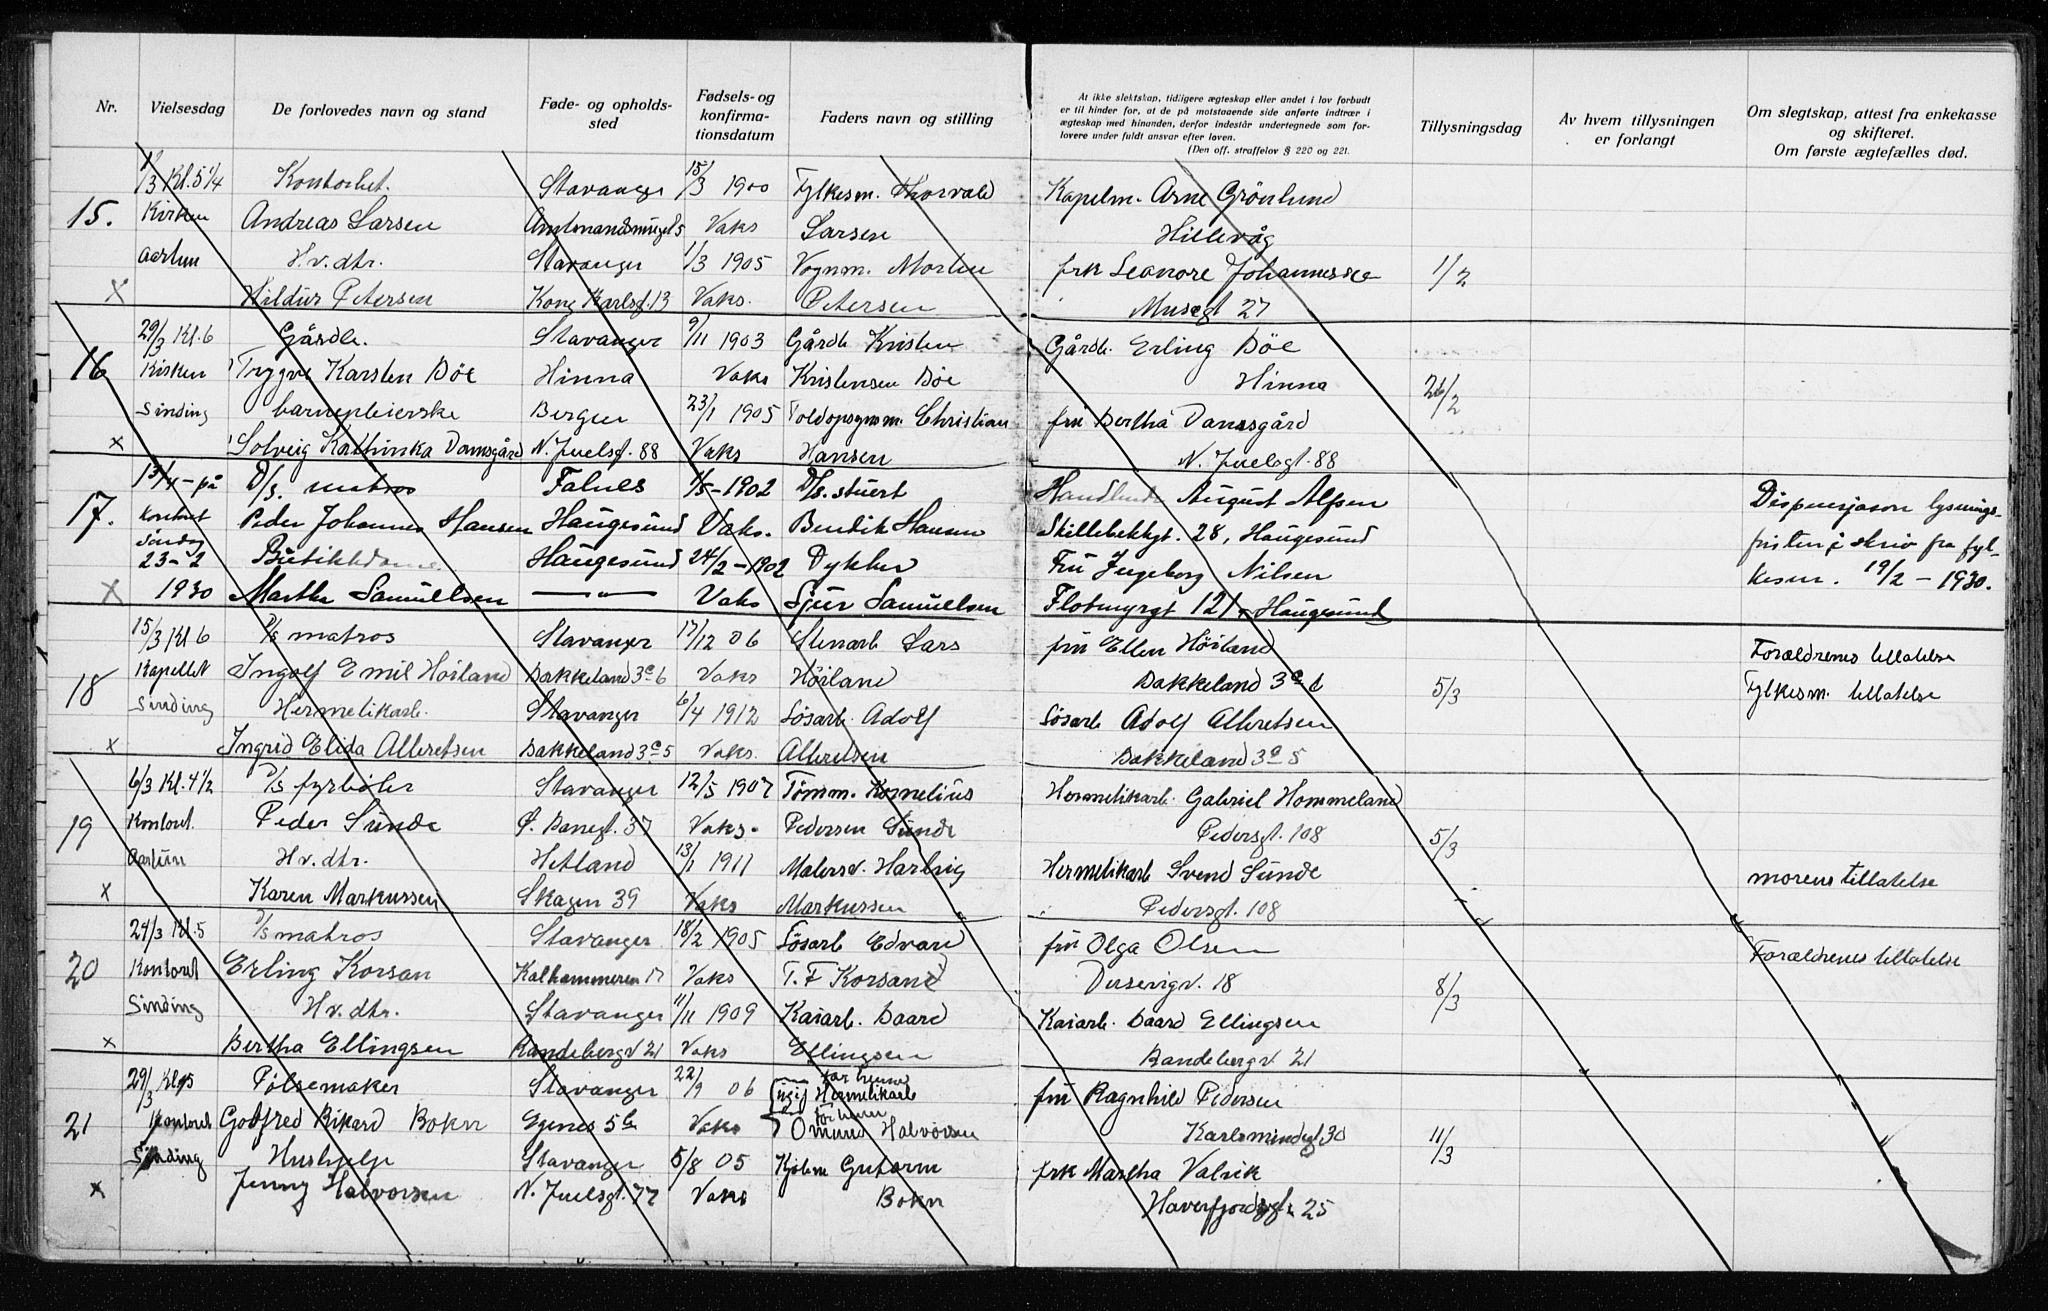 Nr. Vielsesdag De forlovedes navn og stand Føde- og opholds-sted Fødsels- og konfirma-tionsdatum Faders navn og stilling
At ikke slektskap, tidligere ægteskap eller andet i lov forbudt er til hinder for, at de på motstaaende side anførte indtrær i ægteskap med hinanden, derfor indestår undertegnede som for-lovere under fuldt ansvar efter loven. (Den off. straffelov § 220 og 221.
Tillysningsdag Av hvem tillysningen er forlangt Om slegtskap, attest fra enkekasse og skifteret. Om første ægtefælles død.
/3 Kl. 5 1/4 Kontorbet. Stavanger 15/3 1900 Fylkesm. Thorvald Kapelm. Arne Grønlund
15. Kirken Andreas Larsen 5 Vaks Larsen Hillevåg
Aarhun H.v. dtr. Stavanger 1/3 1905 Vognm. Morten frk Leonore Johannessen 1/2
x Hildur Petersen Kong Karlsgt. 13 Vaks. Petersen Musegt 27
29/3 Kl. 6 Gårdb. Stavanger 9/11 1903 Gårdb Kristen Gårdb. Erling Bøe
16 Kirken Trygve Karsten Bøe Hinna Vaks Kristensen Bøe Hinna 26/2
Sinding barnepleierske Bergen 23/1 1905 Toldopsynsm. Christian fru Bertha Damsgård
x Solveig Kathinka Damsgård N. Juelsgt. 88 Vaks Hansen N. Juelsgt. 88
13/4 - på D/s. matros Falnes 1/5 - 1902 D/s. stuert August Alfsen Dispensjason lysnings-
17. Kontoret Peder Johannes Hansen Haugesund Vaks. Bendik Hansen Skillebekkgt. 28, Haugesund fristen i skriv fra fyl-
Sinding 23-2 Butikkdame Haugesund 24/2 - 1902 Dykker Fru Ingeborg Nilsen kesm. 19/2 - 1930.
x 1930 Marthe Samuelsen — " — Vaks Sjur Samuelsen Flotmyrgt 121, Haugesund
15/3 Kl 6 D/s matros Stavanger 17/12 06 Stenarb Lars fru Ellen Høiland Forældrenes tillatelse
18 Kapellet Ingolf Emil Høiland Bakkeland 3 6 Vaks Høiland Bakkeland 3 6 5/3 Fylkesm. tillatelse
Sinding Hermetikarb. Stavanger 6/4 1912 Løsarb. Adolf Løsarb Adolf Albretsen
x Ingrid Elida Albretsen Bakkeland 3 5 Vaks. Albretsen Bakkeland 3 5
6/3 Kl. 4 1/2 D/s fyrbøter Stavanger 12/5 1907 Tømm. Kornelius Hermetikarb. Gabriel Hommeland
19 Kontoret. Peder Sunde Ø. Banegt. 37 Vaks. Pedersen Sunde Pedersgt. 108 5/3
Aarhun H.v. dtr. Hetland 13/1 1911 Malersv. Hartvig Hermetikarb Svend Sunde morens tillatelse
x Karen Markussen Skagen 39 Vaks Markussen Pedersgt. 108
24/3 Kl. 5 D/s matros Stavanger 18/2 1905 Løsarb Edvard fru Olga Olsen Forældrenes tillatelse
20 Kontoret Erling Korsan Kalhammeren 17 Vaks T. F Korsand 18 8/3
Sinding H.v. dtr. Stavanger 11/11 1909 Kaiarb. Baard Kaiarb. Baard Ellingsen
x Bertha Ellingsen Randebergv 21 Vaks Ellingsen Randebergv. 21
29/3 Kl. 5 Pølsemaker Stavanger 22/9 06 far henne Hermetikarb fru Ragnhild Pedersen
21 Kontoret Godtfred Rikard Bokn Egenes 5 Vaks far Omund Halvorsen Karlsmindegt 30 11/3
Sinding Hushjelp Stavanger 5/8 05 Kjølem Gutorm frk Martha Valvik
x Jenny Halvorsen N. Juelsgt. 77 Vaks Bokn Haversfjordsgt. 25